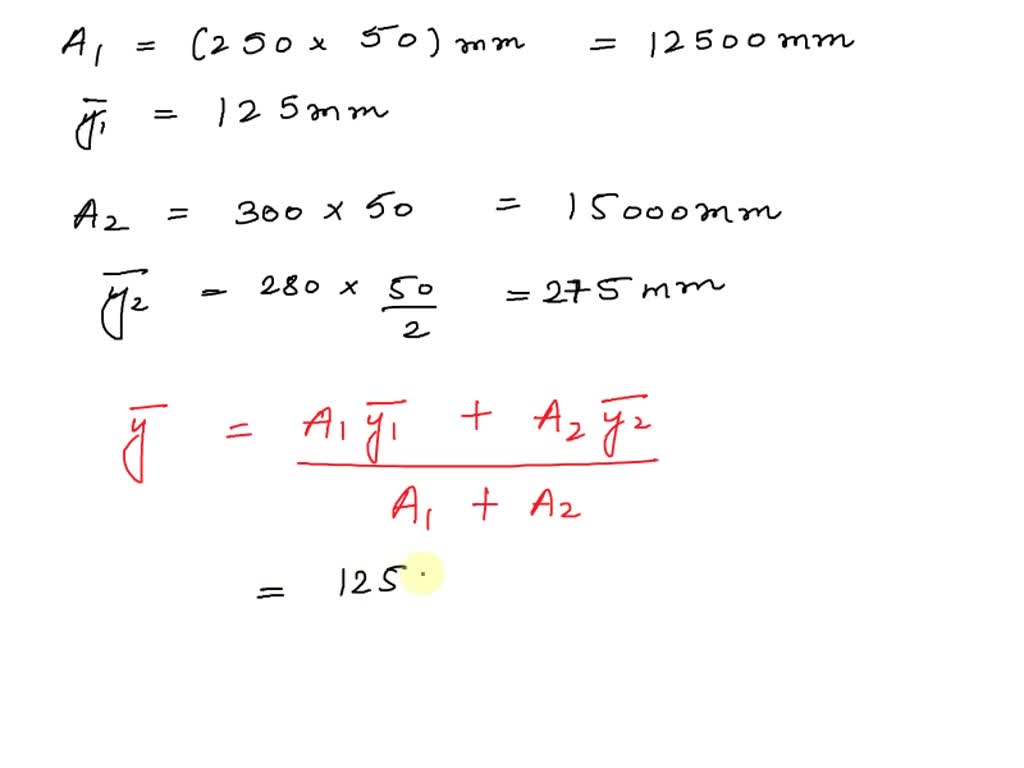 A₁ = (250 × 50) mm = 12500 mm
ȳ₁ = 125 mm
A₂ = 300 × 50 = 15000 mm
ȳ₂ - 280 × 50/2 = 275 mm
ȳ = (A₁ ȳ₁ + A₂ ȳ₂)/(A₁ + A₂)
= 125